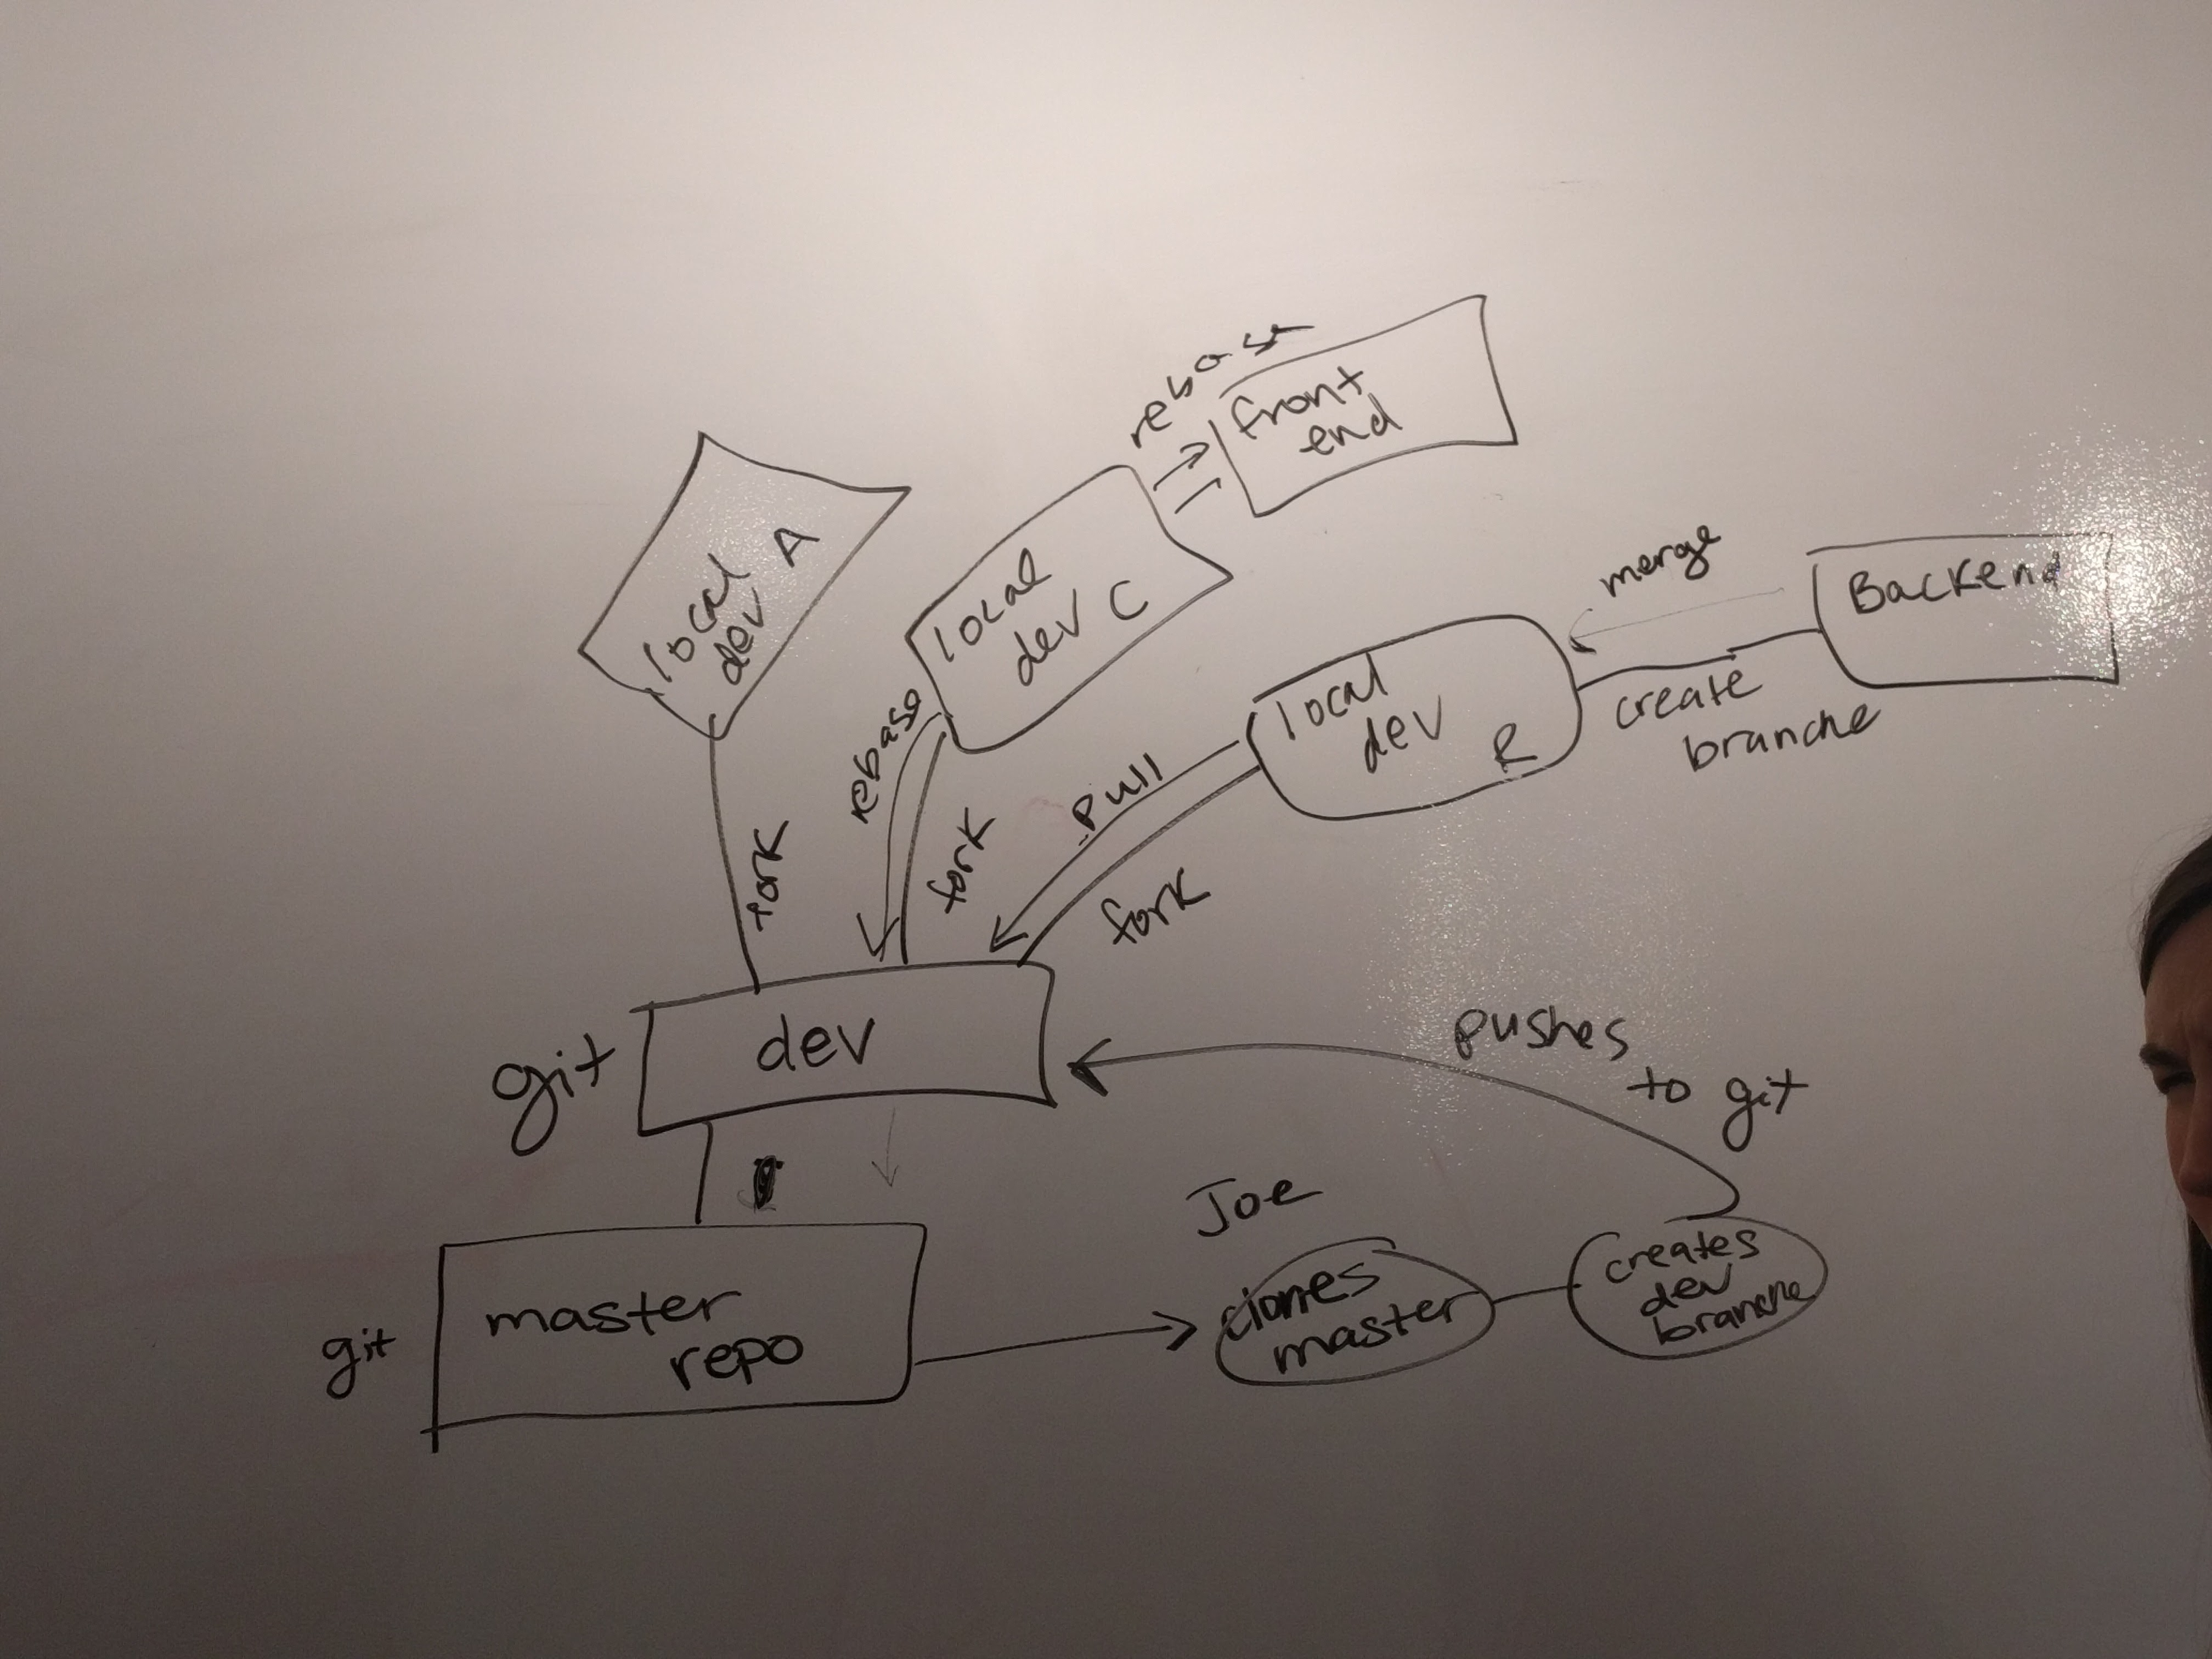 rebase
front
end
local
dev A
local
dev C
merge
Backend
create
branche
local
dev
R
rebase
fork
pull
fork
fork
git
dev
pushes
to git
Joe
git
master
repo
clones
master
creates
dev
branche